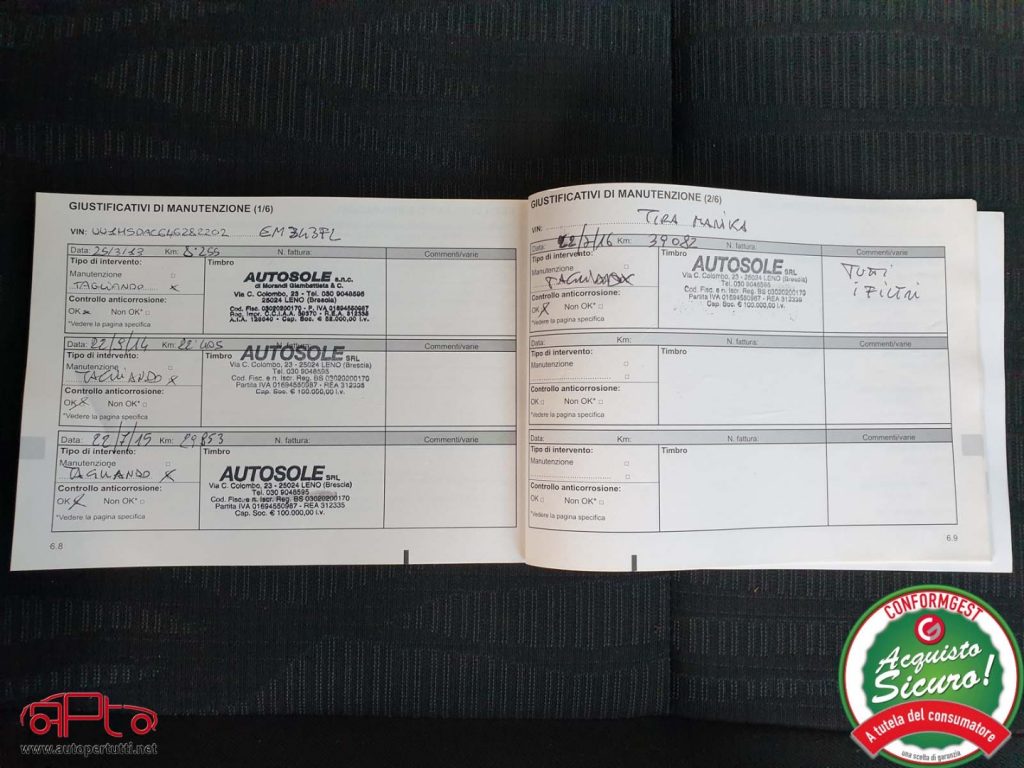 GIUSTIFICATIVI DI MANUTENZIONE (1/6)
VIN: UU1HSDAC646282202 EM343FL
Data: 25/3/13 Km: 8'255
Commenti/varie
Tipo di intervento:
Timbro
Manutenzione □
TAGLIANDO x
Controllo anticorrosione:
OK x Non OK* □
*Vedere la pagina specifica
AUTOSOLE s.n.c.
di Morandi Giambattista & C.
Via C. Colombo, 23 - Tel. 030 9048595
25024 LENO (Brescia)
Cod. Fisc. 03020200170 - P. IVA 01694550987
Reg. Impr. C.C.I.A.A. 39370 - R.E.A. 312335
Cap. Soc. € 58.000,00 i.v.
Data: 22/9/14 Km: 22'405 N. fattura:
Commenti/varie
Tipo di intervento:
Manutenzione □
TAGLIANDO x
Controllo anticorrosione:
OK x Non OK* □
*Vedere la pagina specifica
AUTOSOLE SRL
Via C. Colombo, 23 - 25024 LENO (Brescia)
Tel. 030 9048595
Cod. Fisc. e n. Iscr. Reg. BS 03020200170
Partita IVA 01694550987 - REA 312335
Cap. Soc. € 100.000,00 i.v.
Data: 22/7/15 Km: 29853 N. fattura:
Commenti/varie
Tipo di intervento:
Timbro
Manutenzione □
TAGLIANDO x
Controllo anticorrosione:
OK x Non OK* □
*Vedere la pagina specifica
AUTOSOLE SRL
Via C. Colombo, 23 - 25024 LENO (Brescia)
Tel. 030 9048595
Cod. Fisc. e n. Iscr. Reg. BS 03020200170
Partita IVA 01694550987 - REA 312335
Cap. Soc. € 100.000,00 i.v.
6.8
GIUSTIFICATIVI DI MANUTENZIONE (2/6)
VIN: TIRA MANIKA
Data: 22/7/16 Km: 39082 N. fattura:
Commenti/varie
Tipo di intervento:
Timbro
Manutenzione □
TAGLIANDO x
Controllo anticorrosione:
OK x Non OK* □
*Vedere la pagina specifica
AUTOSOLE SRL
Via C. Colombo, 23 - 25024 LENO (Brescia)
Tel. 030 9048595
Cod. Fisc. e n. Iscr. Reg. BS 03020200170
Partita IVA 01694550987 - REA 312335
Cap. Soc. € 100.000,00 i.v.
TUTTI
I FILTRI
Data: Km: N. fattura:
Commenti/varie
Tipo di intervento:
Timbro
Manutenzione □
Controllo anticorrosione:
OK □ Non OK* □
*Vedere la pagina specifica
Data: Km: N. fattura:
Commenti/varie
Tipo di intervento:
Timbro
Manutenzione □
Controllo anticorrosione:
OK □ Non OK* □
*Vedere la pagina specifica
6.9
CONFORMGEST
Acquisto
Sicuro!
A tutela del consumatore
una scelta di garanzia
APto
www.autopertutti.net